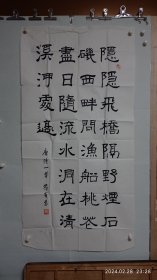 隱隱飛橋隔野煙石
磯西畔問漁船桃花
盡日隨流水洞在清
溪何處邊
2024.02.28 23:28